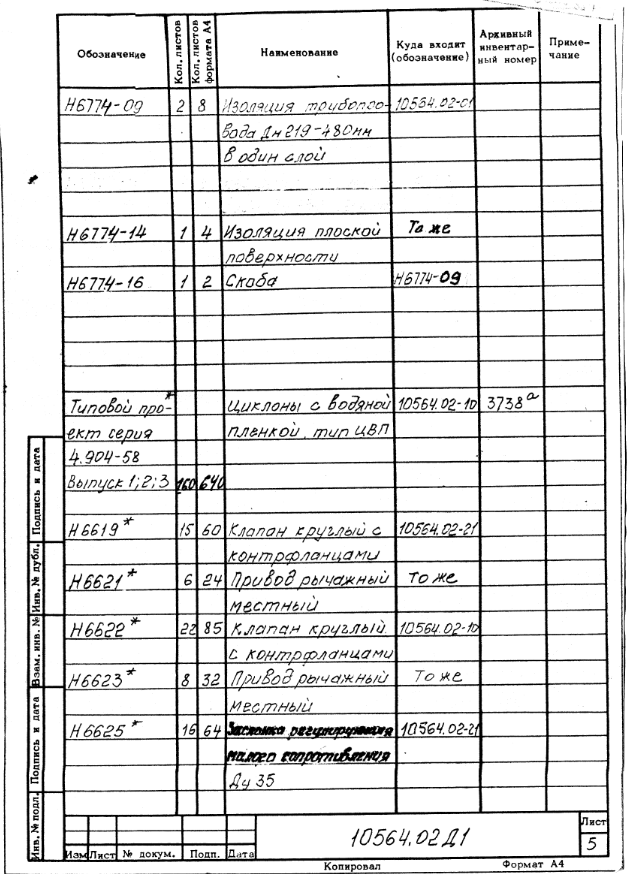 Обозначение Кол. листов Кол. листов формата А4 Наименование Куда входит (обозначение) Архивный инвентар- ный номер Приме- чание
Н6774-09 2 8 Изоляция трубопро- 10564.02-01
вода Дн 219-480мм
в один слой
Н6774-14 1 4 Изоляция плоской То же
поверхности
Н6774-16 1 2 Скоба Н6774-09
Типовой про-* Циклоны с водяной 10564.02-10 3738а
ект серия пленкой тип ЦВП
4.904-58
Выпуск 1;2;3 160 640
Н6619* 15 60 Клапан круглый с 10564.02-21
контрфланцами
Н6621* 6 24 Привод рычажный То же
местный
Н6622* 22 85 Клапан круглый 10564.02-10
с контрфланцами
Н6623* 8 32 Привод рычажный То же
местный
Н6625* 16 64 Заслонка регулирующая 10564.02-21
малого сопротивления
Ду 35
Подпись и дата
Инв. № дубл.
Взам. инв. №
Подпись и дата
Инв. № подл.
10564.02Д1
Лист
5
Изм Лист № докум. Подп. Дата
Копировал Формат А4